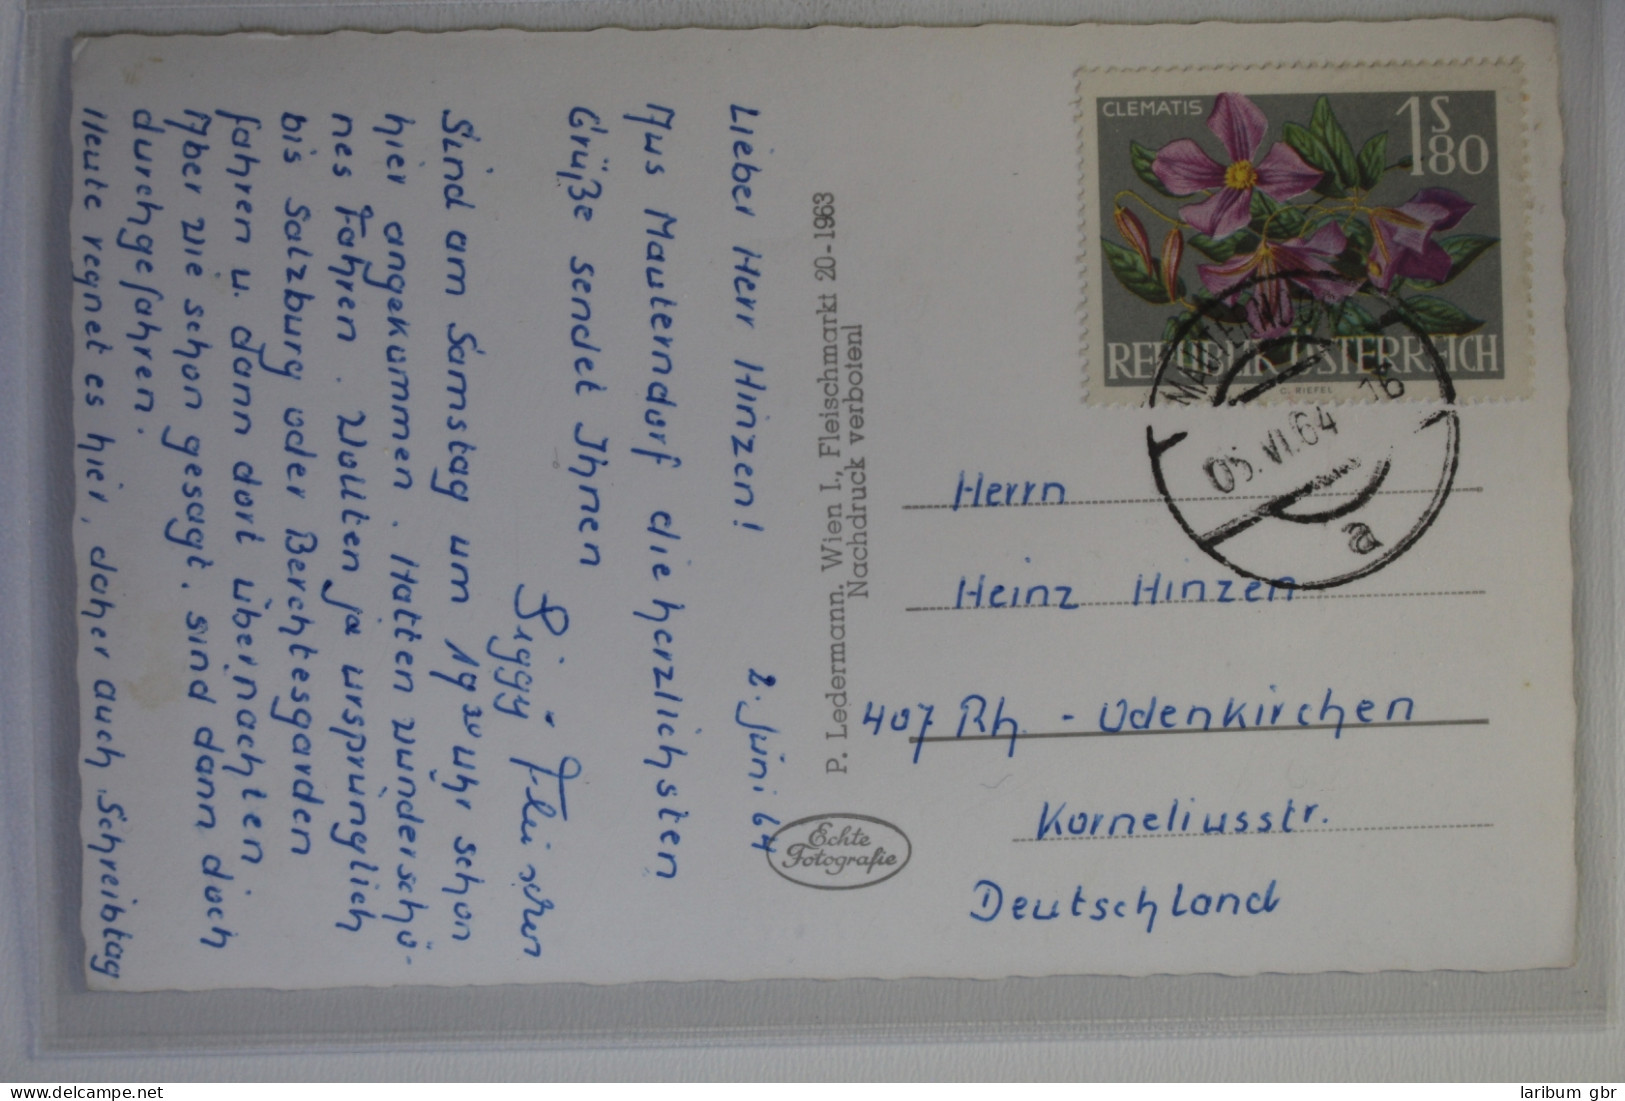 2. Juni 64
Lieber Herr Hinzen!
Aus Mauterndorf die herzlichsten
Grüße sendet Ihnen
Siggy
Sind am Samstag um 19 30 Uhr schon
hier angekommen. Hatten wunderschö-
nes Fahren. Wollten ja ursprünglich
bis Salzburg oder Berchtesgarden
fahren u. dann dort übernachten.
Aber wie schon gesagt. sind dann doch
durchgefahren.
Heute regnet es hier, daher auch Schreibtag
P. Ledermann. Wien I., Fleischmarkt 20-1963
Nachdruck verboten!
Echte
Fotografie
CLEMATIS
1S80
REPUBLIK ÖSTERREICH
MAUTERNDORF
05. VI. 64 16
a
Herrn
Heinz Hinzen
407 Rh. - Odenkirchen
Korneliusstr.
Deutschland
laribum gbr